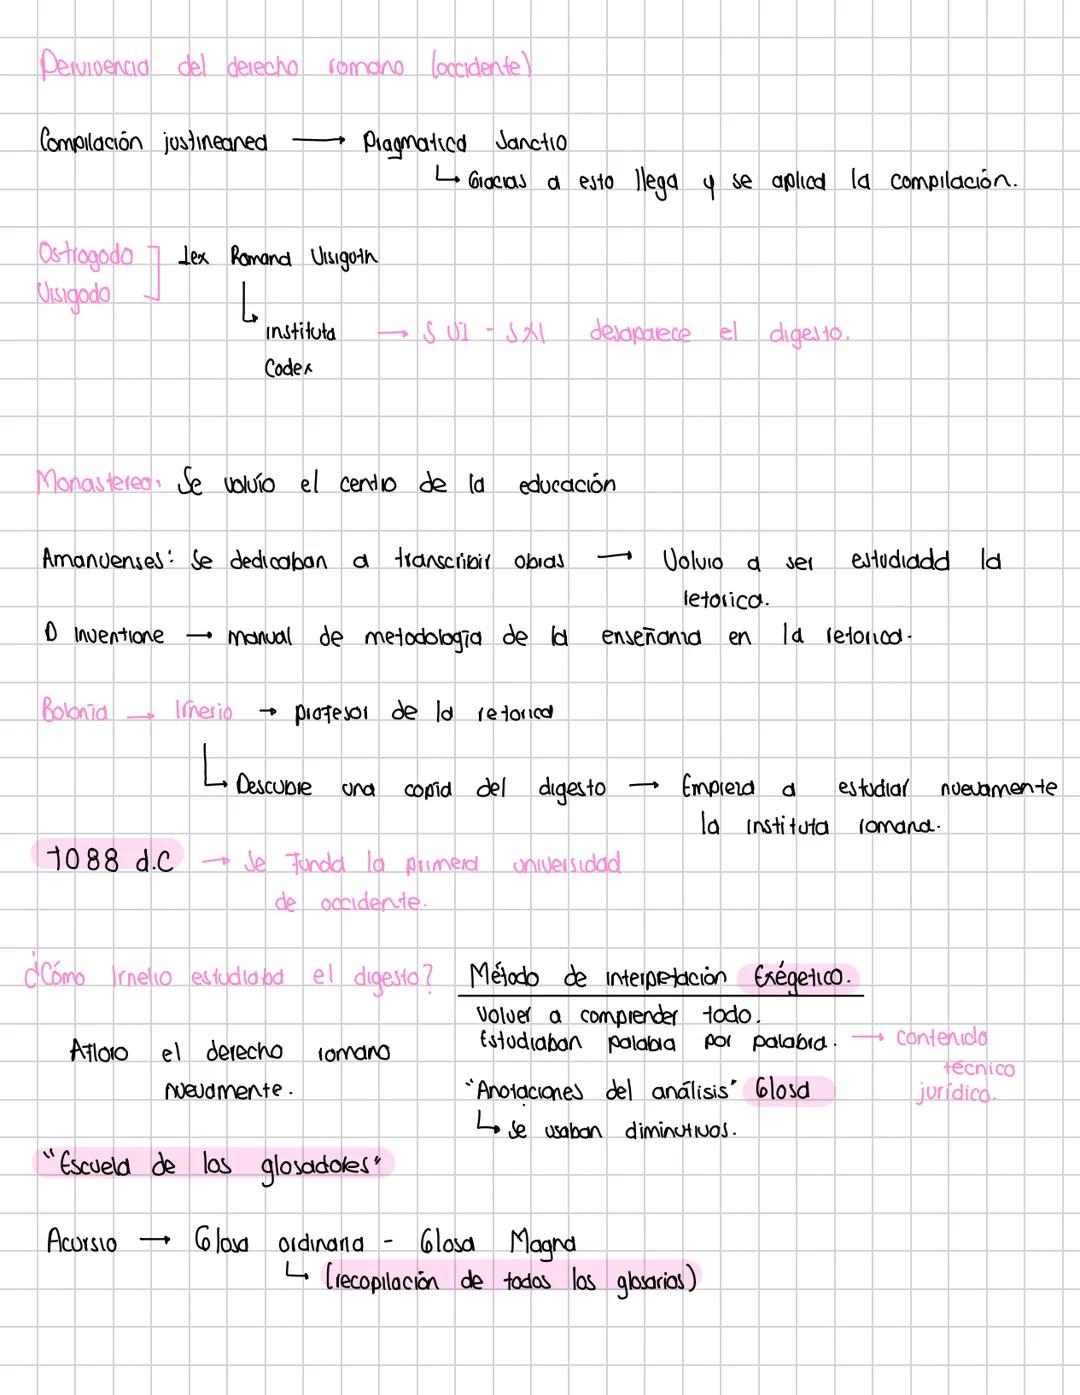 Pervivencia del derecho romano (occidente)
Compilación justineanea → Pragmatica Sanctio
↳ Gracias a esto llega y se aplica la compilación.
Ostrogodo ] Lex Romana Visigoth
Visigodo
↳ instituta → S VI - S XI desaparece el digesto.
Codex
Monastereo: Se volvío el centro de la educación
Amanuenses: Se dedicaban a transcribir obras → Volvio a ser estudiada la
retorica.
D Inventione → manual de metodologia de la enseñanza en la retorica.
Bolonia → Irnerio → profesor de la retorica
↳ Descubre una copia del digesto → Empieza a estudiar nuevamente
la instituta romana.
1088 d.C → Se funda la primera universidad
de occidente.
¿Cómo Irnerio estudiaba el digesto? Método de interpretación Exégetico.
Volver a comprender todo.
Estudiaban palabra por palabra. → contenido
técnico
jurídico.
Afloro el derecho romano
nuevamente.
"Anotaciones del análisis" Glosa
↳ Se usaban diminutivos.
"Escuela de los glosadores"
Acursio → Glosa ordinaria - Glosa Magna
↳ (recopilación de todos los glosarios)